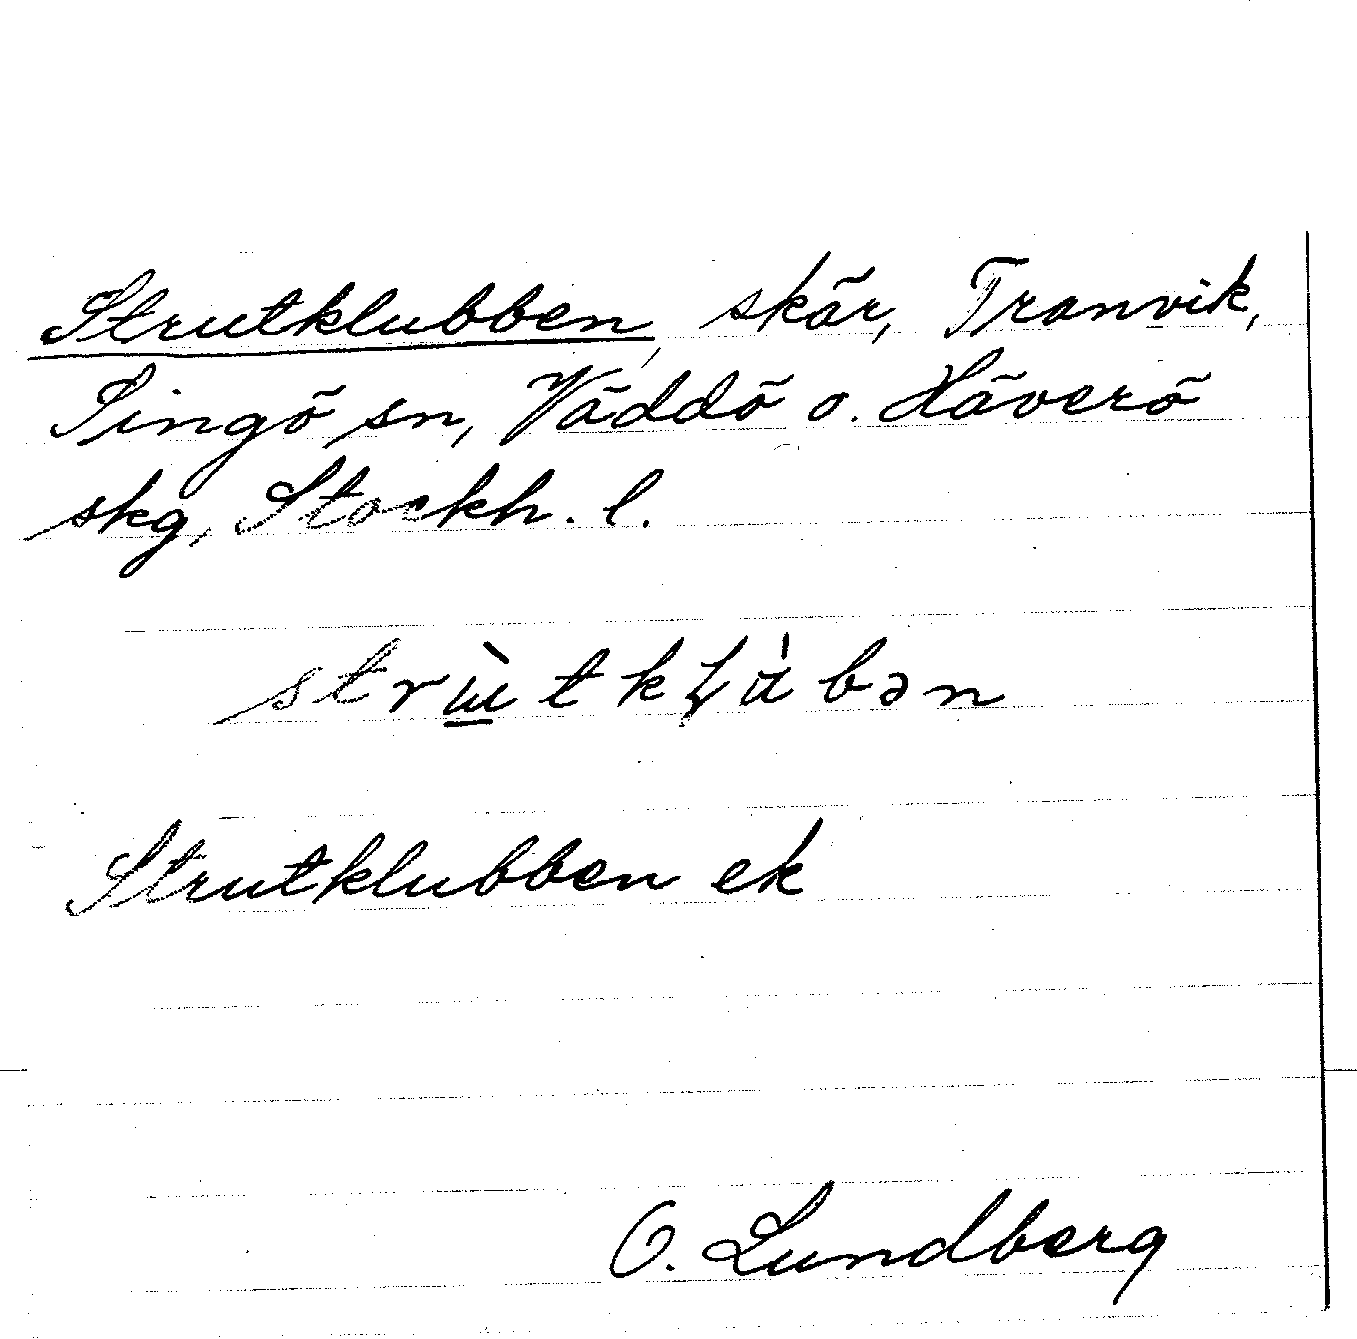 Strutklubben, skär, Tranvik,
Singö sn, Väddö o. Häverö
skg, Stockh. l.
Strutklubben ek
O. Lundberg